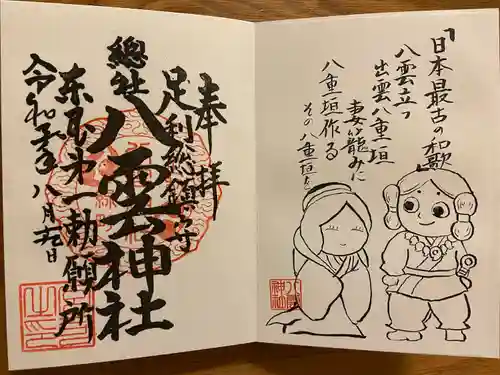 「日本最古の和歌」
八雲立つ
出雲八重垣
妻籠みに
八重垣作る
その八重垣を
八雲神社
奉拝
足利総鎮守
總社
八雲神社
東国第一勅願所
令和
年八月
日